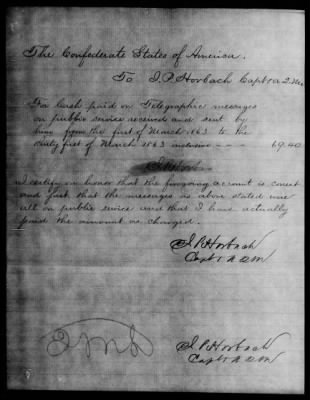 The Confederate States of America.
To J. P. Horbach Capt & A.Q.M.
For Cash paid on Telegraphic messages
on public service received and sent by
him from the first of March 1863 to the
thirty first of March 1863 inclusive - - - 69.40
I certify on honor that the foregoing account is correct
and just that the messages as above stated were
all on public service and that I have actually
paid the amount as charged.
J. P. Horbach
Capt & A.Q.M
J. P. Horbach
Capt & A.Q.M